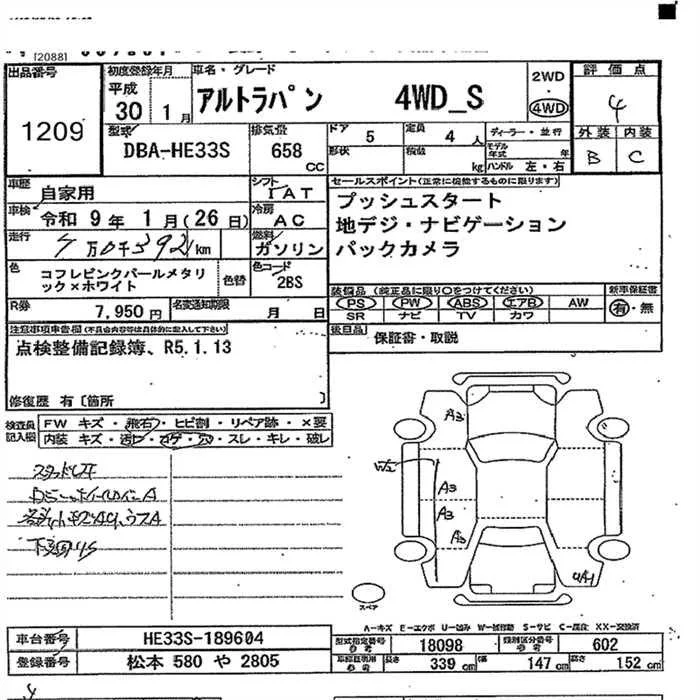 [2088]
出品番号
1209
初度登録年月
平成
30 1月
車名・グレード
アルトラパン 4WD_S
2WD
4WD
評価点
4
外装 内装
B C
型式
DBA-HE33S
排気量
658
CC
ドア 5
定員 4 人
形状
積載 kg
ディーラー・並行
モデル年式 年
ハンドル 左・右
車歴 自家用
シフト IAT
車検 令和 9年 1月(26日)
冷房 AC
走行 万0千392km
燃料 ガソリン
色 コフレピンクパールメタリ
ック×ホワイト
色替
色コード
2BS
R券 7,950円
名変通知期限 月 日
セールスポイント(正常に機能するものに限ります)
プッシュスタート
地デジ・ナビゲーション
バックカメラ
装備品(純正品に限り○をつけてください)
PS PW ABS エアB AW
SR ナビ TV カワ
新車保証書
有・無
後日品 保証書・取説
注意事項車告欄(不具合内容等は具体的に記入して下さい)
点検整備記録簿、R5.1.13
修復歴 有〔箇所 〕
検査員
記入欄
FW キズ・飛石・ヒビ割・リペア跡・×要
内装 キズ・汚レ・コゲ・穴・スレ・キレ・破レ
A3
W2
A3
A3
A3
スペア
A-キズ E-エクボ U-凹み W-波形動 S-サビ C-腐蝕 XX-交換済
車台番号 HE33S-189604
登録番号 松本 580 や 2805
型式指定番号
参考
18098
類別区分番号
参考
602
車検証明用
参考
長さ 339cm
幅 147cm
高さ 152cm